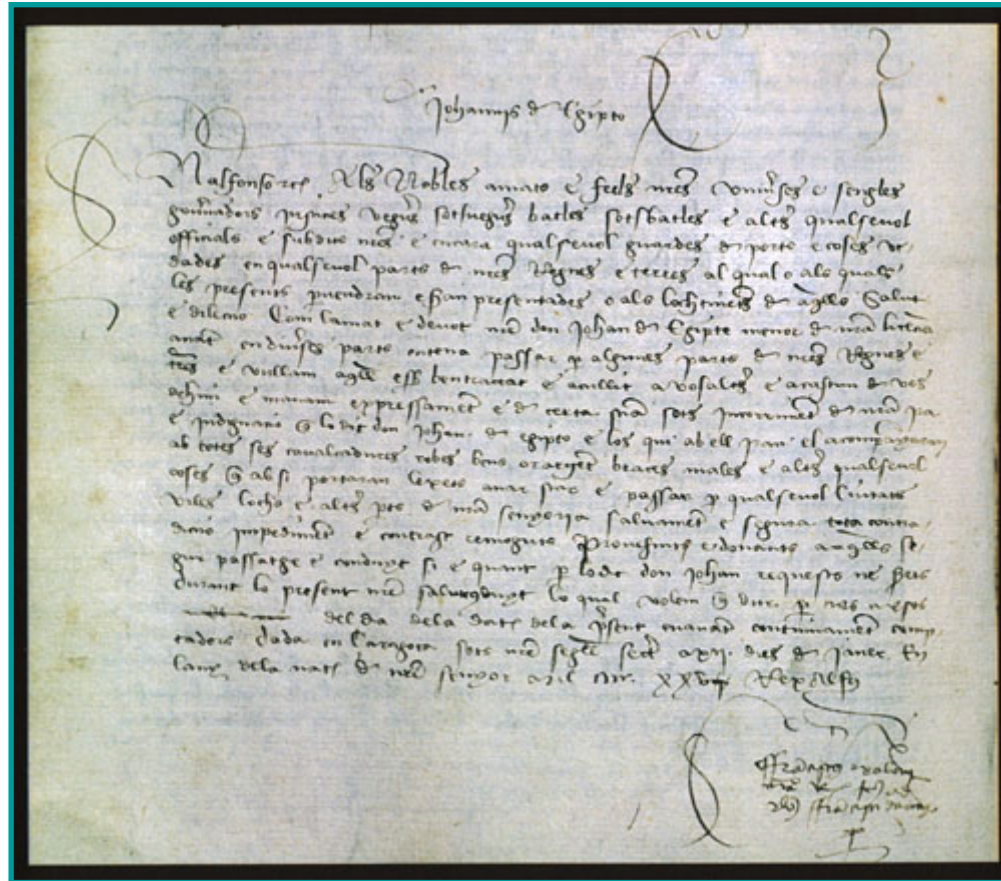 Johannis de Egipto
N alfonso etc. Als Nobles amats e feels nres universes e sengles
governadors justicies veguers sotsveguers batles sotsbatles e altres qualsevol
officials e subdits nres e encara qualsevol guardes de ports e coses ve-
dades en qualsevol parts de nres Regnes e terres al qual o als quals
les presents pervendran e seran presentades o als lochtinents de aqlls Salut
e dileccio Com lamat e devot nre don Johan de Egipte menor de nra licencia
anant en diverses parts entena passar per algunes parts de nres Regnes e
tres e vullam aqll esser ben tractat e acullit a vosaltres e a cascun de vos
dehim e manam expressament e de certa sciencia sots incorriment de nra ira
e indignacio que lo dit don Johan de Egipto e los qui ab ell iran e l acompanyaran
ab totes ses cavalcadures robes bens or argent bitaces males e altres qualsevol
coses que ab si portaran lexets anar star e passar per qualsevol Ciutats
viles lochs e altres pts de nra senyoria salvament e segura tota contra-
diccio impediment e contrast remoguts Provehints e donants a aqlls se-
gur passatge e conduyt si e quant per lo dit don Johan requests ne serets
durant lo present nre salvconduyt lo qual volem que dure per tres mesos
del dia dela data dela psent enavant continuament comp-
tadors Dada en Caragoca sots nre segell secret a XII dies de Janer En
lany dela nat de nre senyor Mil CCCC XXV Rex Alfonsus